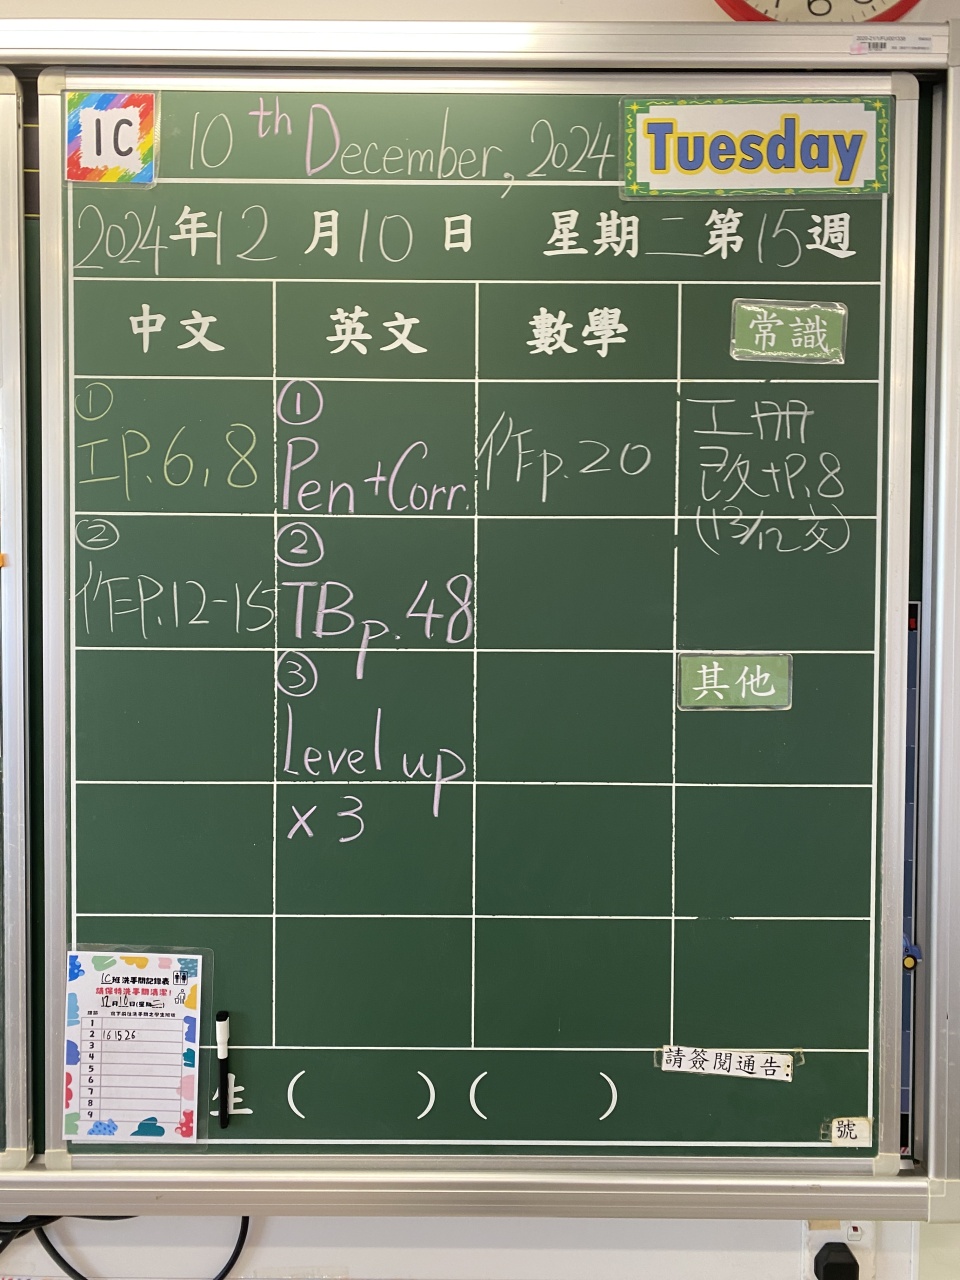 1C
10th December, 2024
Tuesday
2024年12月10日 星期二第15週
中文
英文
數學
常識
①
工P.6,8
②
作P.12-15
①
Pen+Corr.
②
TB p.48
③
Level up
x 3
作p.20
工冊
改+P.8
(13/12交)
其他
1C班洗手間記錄表
請保持洗手間清潔!
12月10日(星期二)
1
2 16 15 26
3
4
5
6
7
8
9
生 ( ) ( )
請簽閱通告:
號